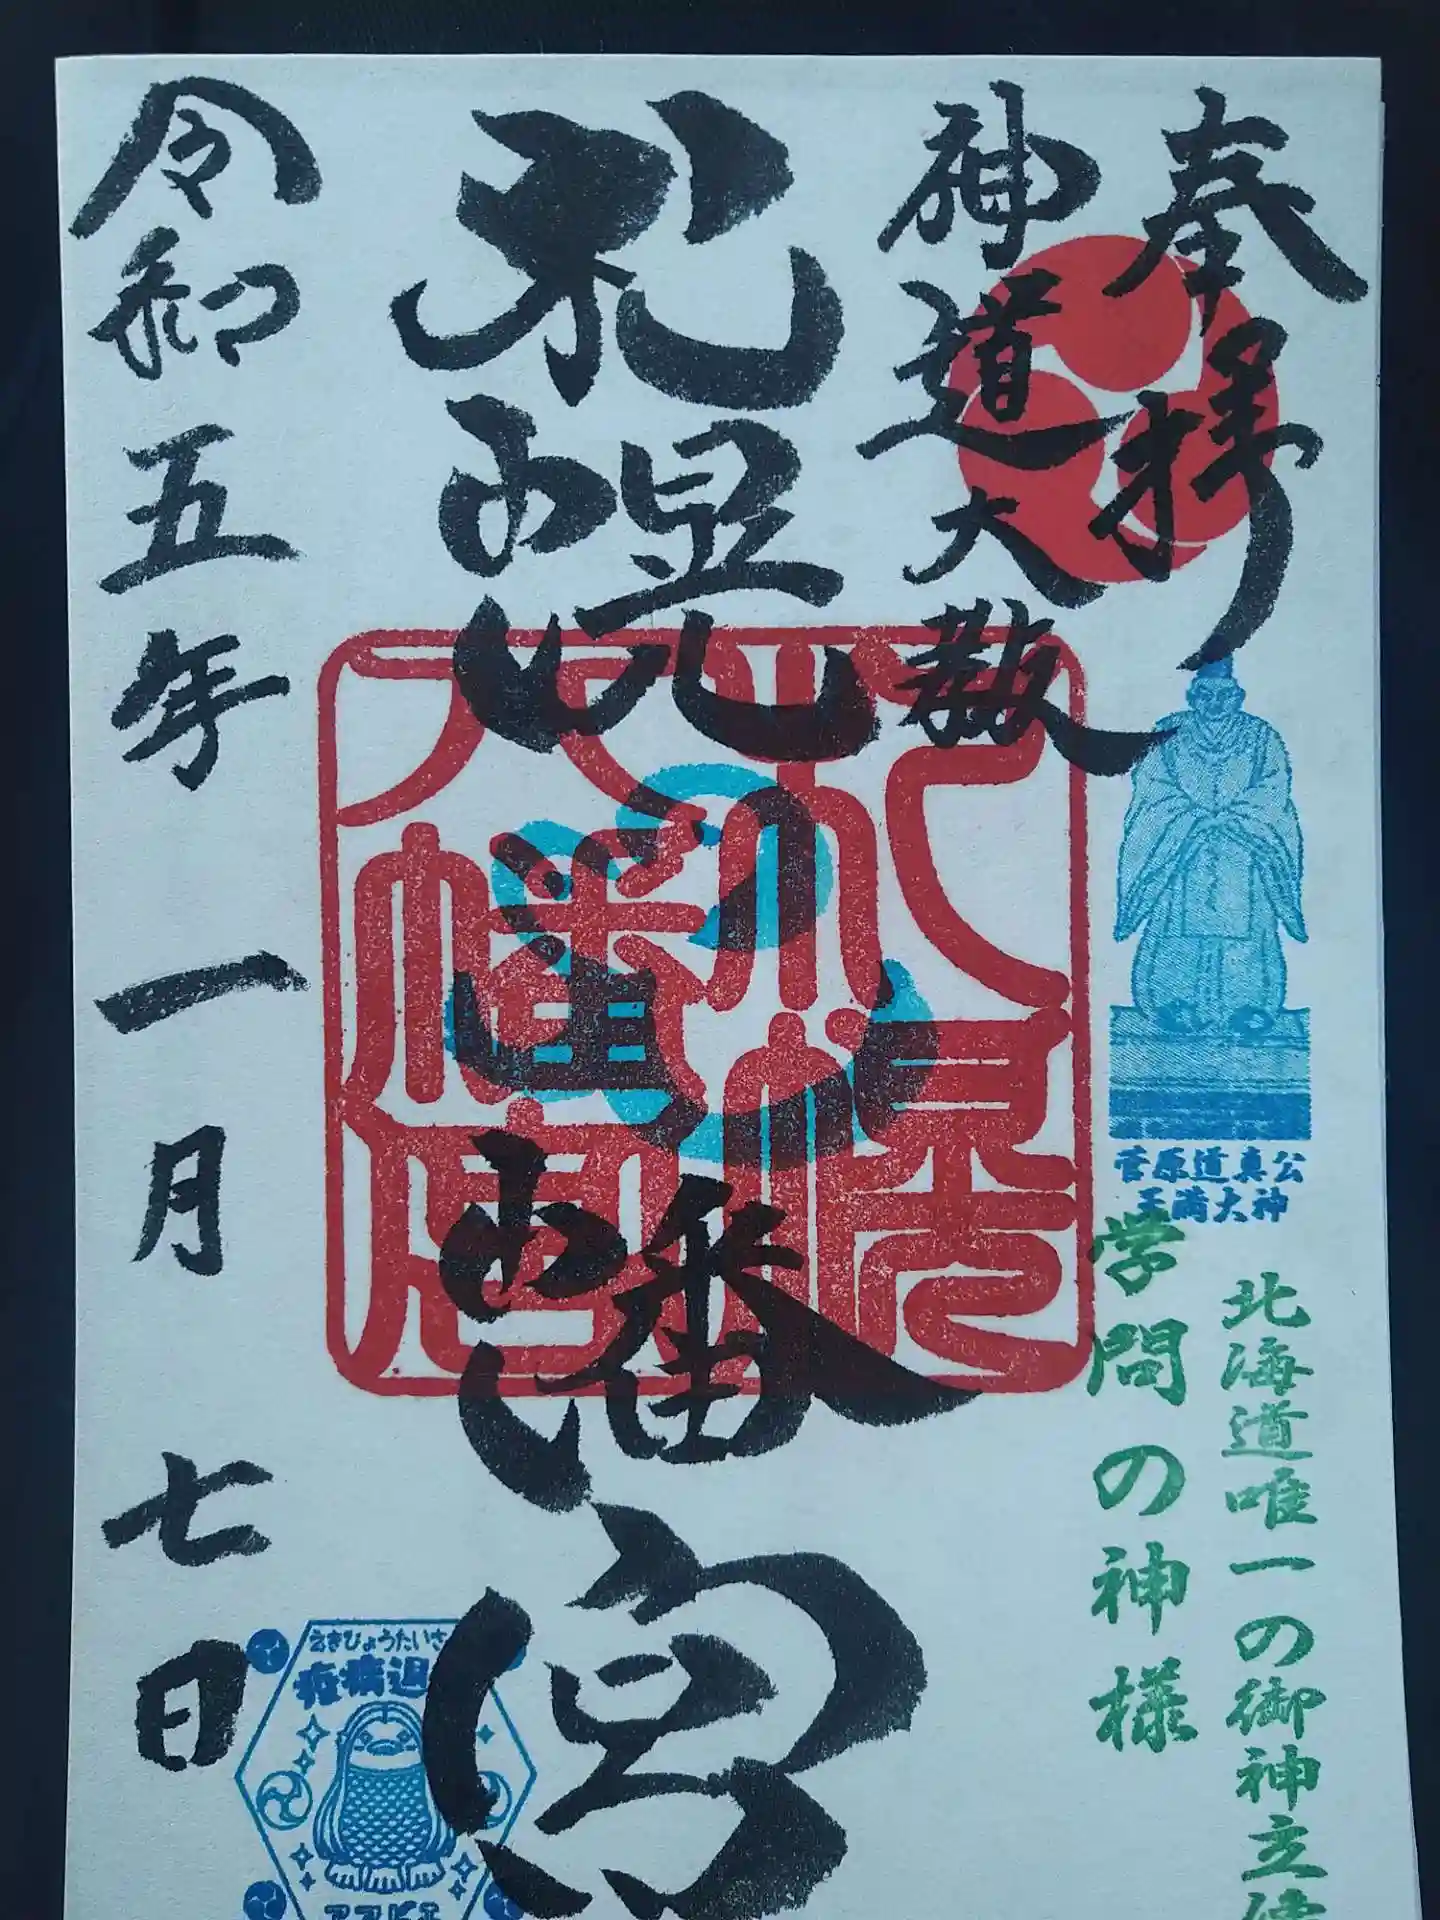 奉拝
神道大教
札幌八幡宮
令和五年一月七日
札幌
八幡宮
菅原道真公
天満大神
北海道唯一の御神立像
学問の神様
えきびょうたいさ
疫病退
アマビエ